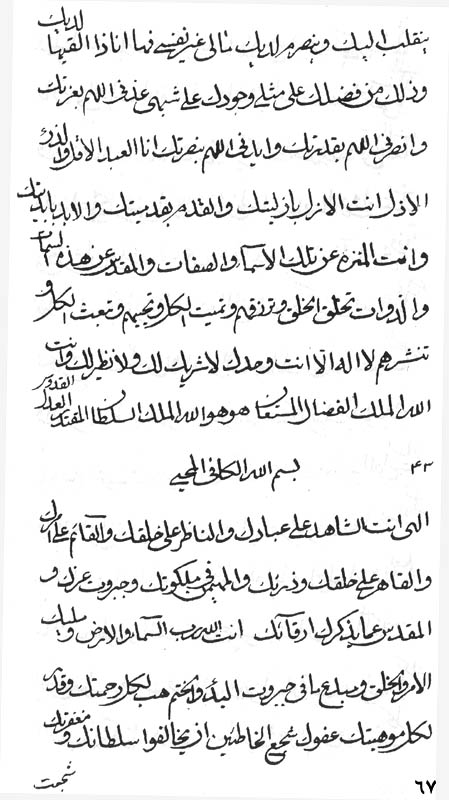 ينقلب اليك وينصرم لديك مالى غير نفسى فها انا ذا القيها لديك
وذلك من فضلك على مثلى وجودك على شبهى عذنى اللهم بعزتك
وانصرنى اللهم بقدرتك وايدنى اللهم بنصرتك انا العبد الأقل والذر
الاذل انت الازل بازليتك والقدم بقدميتك والابد بابديتك
وانت المنزه عن تلك الاسماء والصفات والمقدس عن هذه السمات
والدوات تخلق الخلق وترزقهم وتميت الكل وتحييهم وتبعث الكل و
تنشرهم لا اله الا انت وحدك لا شريك لك ولا نظير لك وانت
الله الملك الفضال المستعان هو هو الله الملك السلطان المقتدر العدل القدوس
٤٣ بسم الله الكافى المحيى
الهى انت الشاهد على عبادك والناظر على خلقك والقائم على امرك
والقاهر على خلقك وذرئك والمهيمن فى ملكوتك وجبروت عزك و
المقدس عما يذكرك ارقائك انت الله رب السماء والارض ومليك
الامر والخلق ومبدع ما فى جبروت البدء والختم هب لكل رحمتك وقدر
لكل موهبتك عفوك شجع الخاطئين اذ يخالفوا سلطانك ومغفرتك
شجعت
٦٧